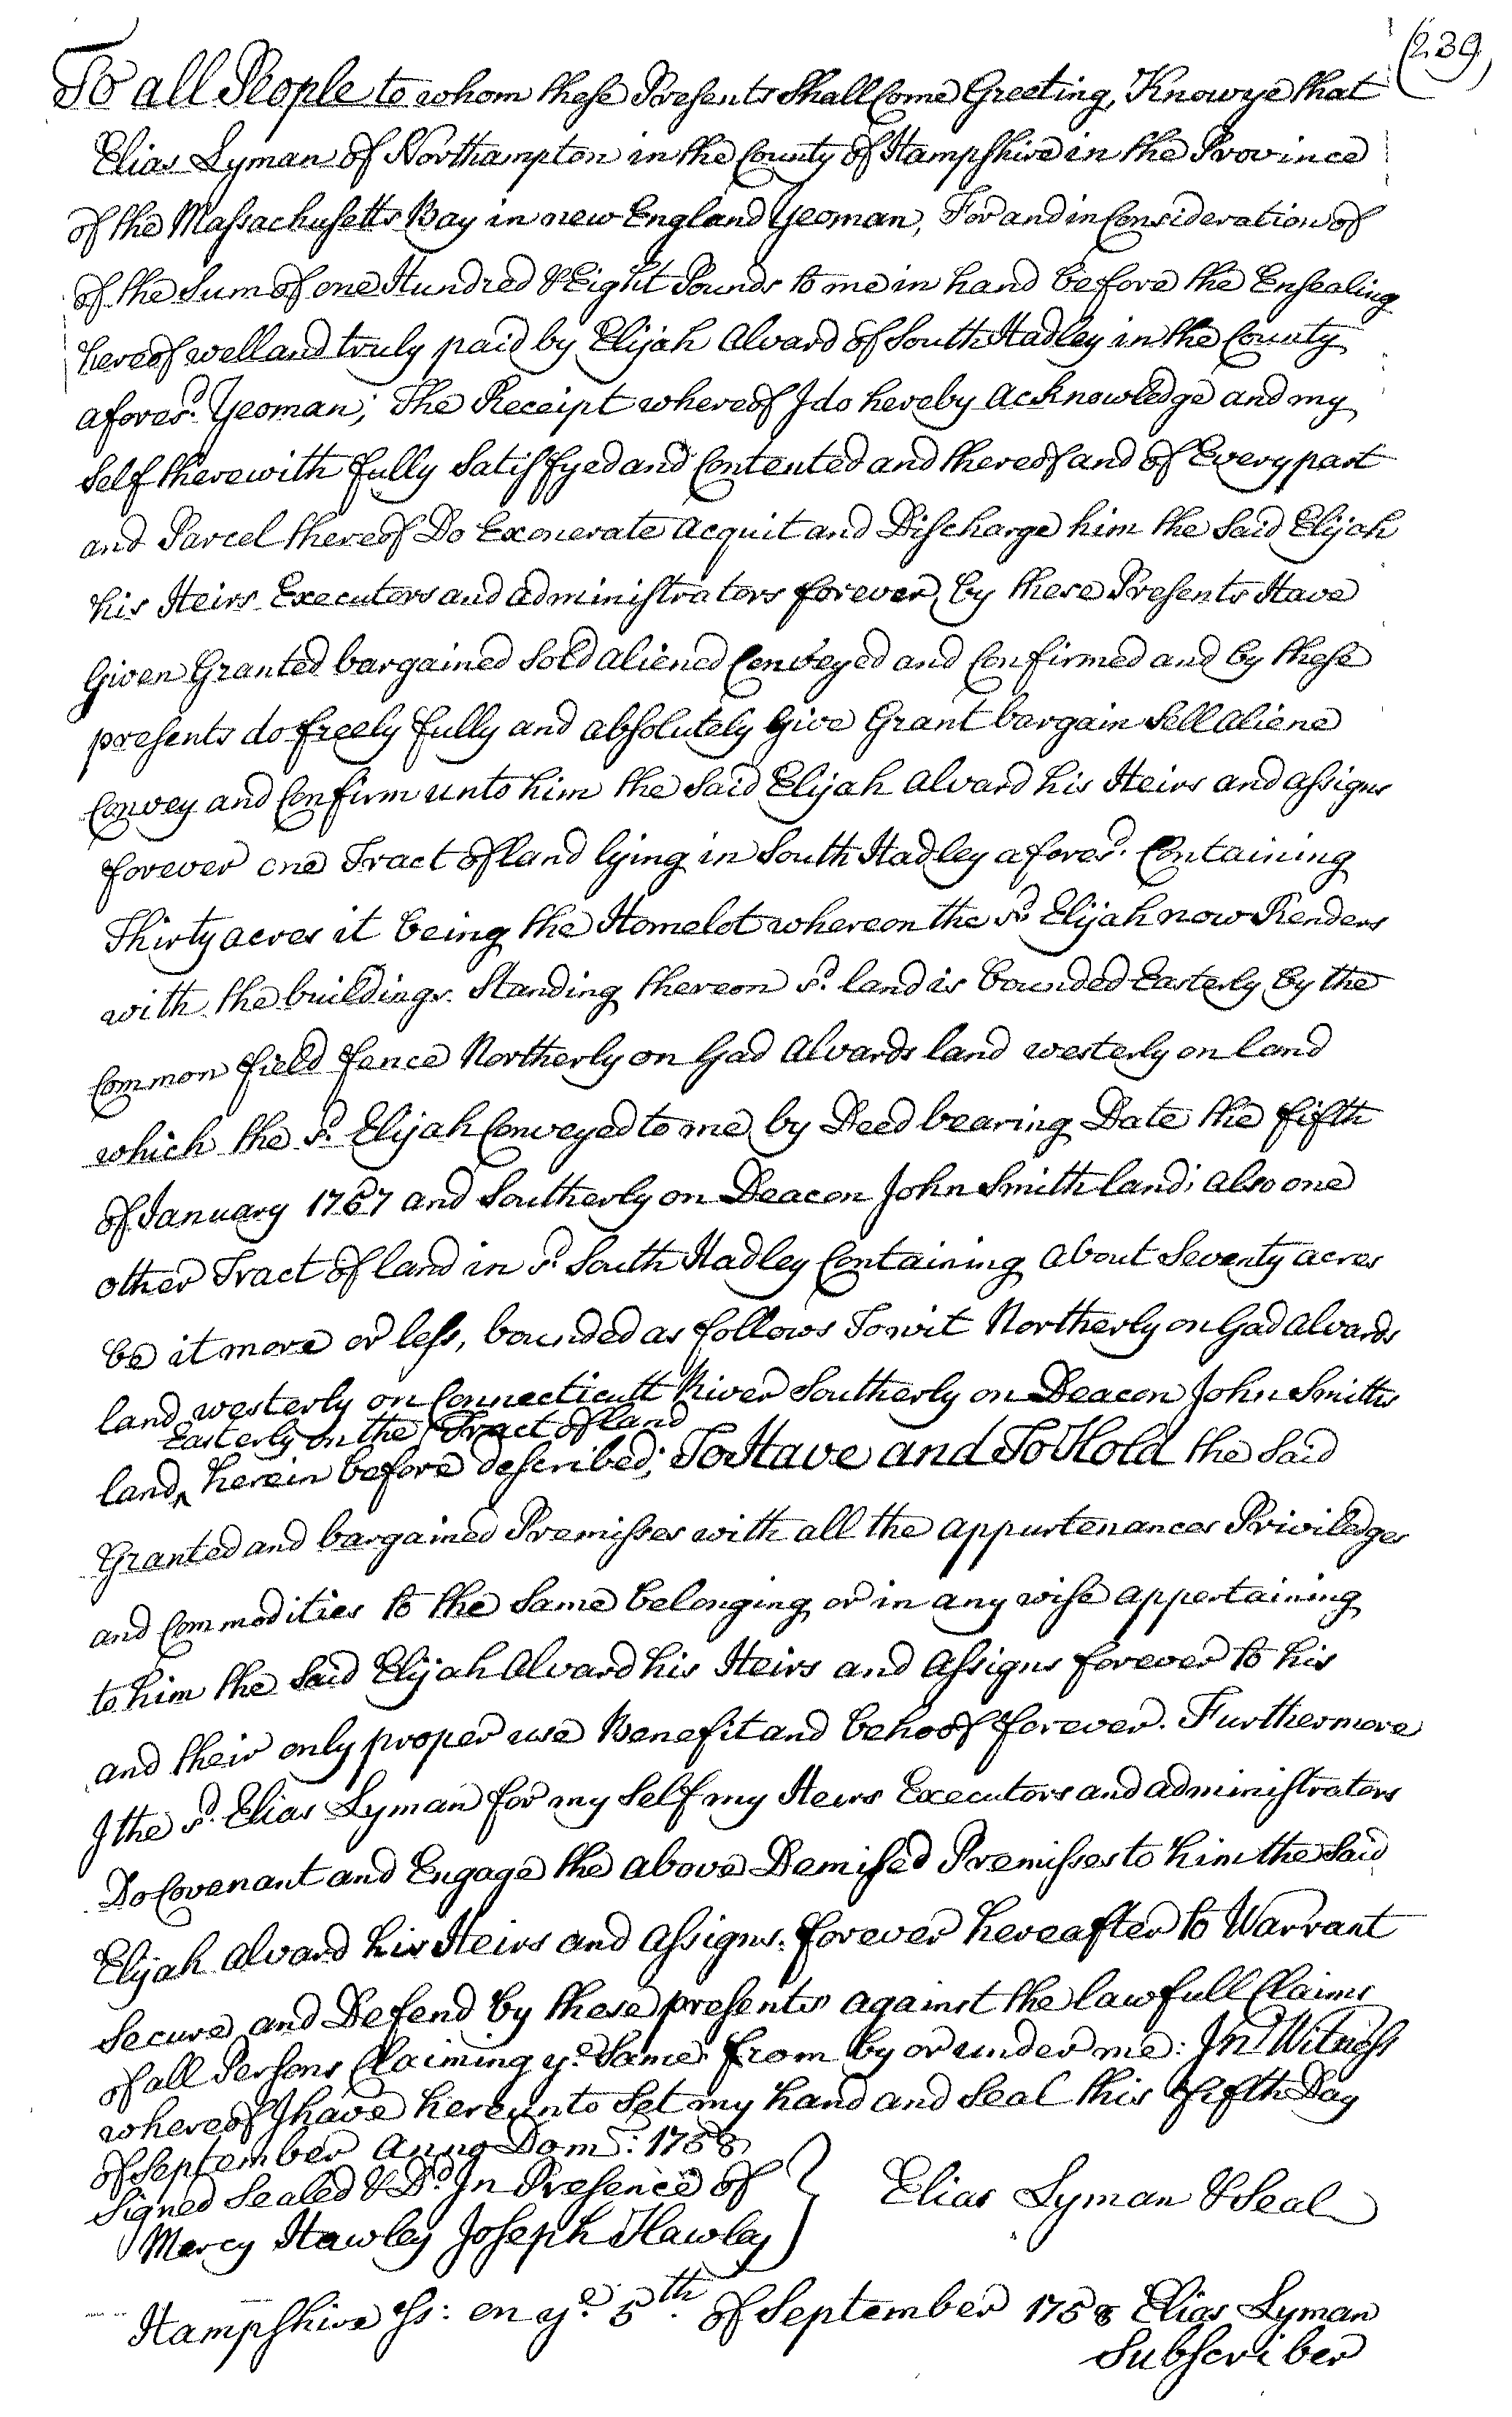 (239)
To all People to whom these Presents Shall Come Greeting, Know ye that
Elias Lyman of Northampton in the County of Hampshire in the Province
of the Massachusetts Bay in new England Yeoman, For and in Consideration of
of the Sum of one Hundred & Eight Pounds to me in hand before the Ensealing
hereof well and truly paid by Elijah Alvard of South Hadley in the County
afores.d Yeoman; The Receipt whereof I do hereby Acknowledge and my
Self therewith fully Satisfyed and Contented and thereof and of Every part
and Parcel thereof Do Exonerate acquit and Discharge him the Said Elijah
his Heirs Executors and administrators forever, by these Presents Have
Given Granted bargained Sold aliened Conveyed and Confirmed and by these
presents do freely fully and absolutely Give Grant bargain Sell aliene
Convey and Confirm unto him the Said Elijah Alvard his Heirs and assigns
forever one Tract of land lying in South Hadley afores.d Containing
Thirty acres it being the Homelot whereon the s.d Elijah now Renders
with the buildings Standing thereon s.d land is bounded Easterly by the
Common field fence Northerly on Gad Alvards land westerly on land
which the s.d Elijah Conveyed to me by Deed bearing Date the fifth
of January 1757 and Southerly on Deacon John Smith land; also one
other Tract of land in s.d South Hadley Containing about Seventy acres
be it more or less, bounded as follows Towit Northerly on Gad Alvards
land westerly on Connecticutt River Southerly on Deacon John Smiths
Easterly on the Tract of land
land, herein before described; To Have and To Hold the Said
Granted and bargained Premisses with all the appurtenances Priviledges
and Commodities to the Same belonging or in any wise appertaining
to him the Said Elijah Alvard his Heirs and Assigns forever to his
and their only proper use Benefit and behoof forever. Furthermore
I the s.d Elias Lyman for my Self my Heirs Executors and administrators
Do Covenant and Engage the above Demised Premisses to him the Said
Elijah Alvard his Heirs and Assigns forever hereafter to Warrant
Secure and Defend by these presents against the lawfull Claims
of all Persons Claiming y.e Same from by or under me: In Witness
whereof I have hereunto Set my hand and Seal this fifth Day
of September Anno Dom: 1758
Signed Sealed & D.d In Presence of } Elias Lyman & Seal
Mercy Hawley Joseph Hawley
Hampshire ss: on y.e 5th. of September 1758 Elias Lyman
Subscriber